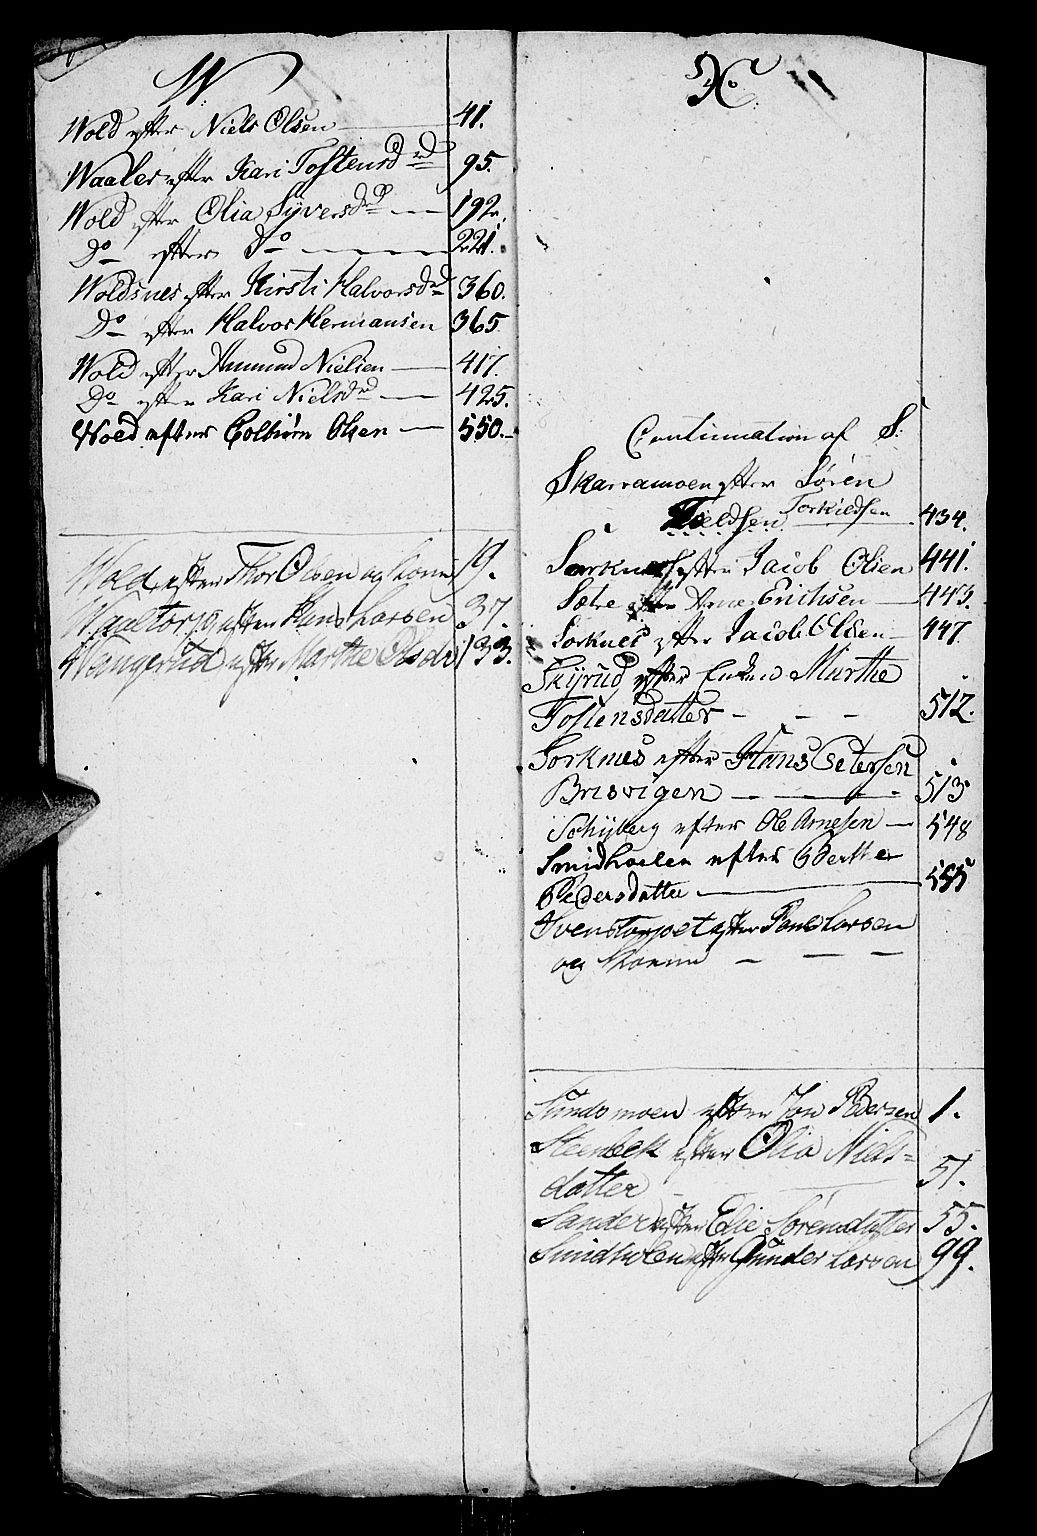 W.
Wold efter Niels Olsen 41.
Waaler efter Kari Tostensdrd 95.
Wold efter Olia Syversdr 192.
Do efter Do 221.
Woldsnes efter Kirsti Halvorsdrd 360.
Do efter Halvor Hermansen 365
Wold efter Amund Nielsen 417.
Do efter Kari Nielsdrd 425.
Wold efter Colbiörn Olsen 550.
Wold efter Thor Olsen og Kone 19.
Waaltorp efter Hans Larsen 37.
Wangerud efter Marthe Olsdr 133.
X.
Continuation af S.
Skarramoen efter Sören
Torkildsen 434.
Sorknes efter Jacob Olsen 441.
Sætre efter Arne Erichsen 443.
Sorknes efter Jacob Olsen 447.
Skyrud efter Enken Marthe
Tostensdatter - - - 512.
Sorknes efter Hans Petersen
Brisvigen 513
Schyberg efter Ole Arnesen 548
Smidholen efter Berthe
Pedersdatter 555
Svenstorpet efter Poul Larsen
og Kone - - -
Sundsmoen efter Jon Pedersen 1.
Steenbek efter Olia Niels=
datter 51.
Sander efter Elie Sörensdatter 55.
Smidholen efter Gunder Larsen 99.